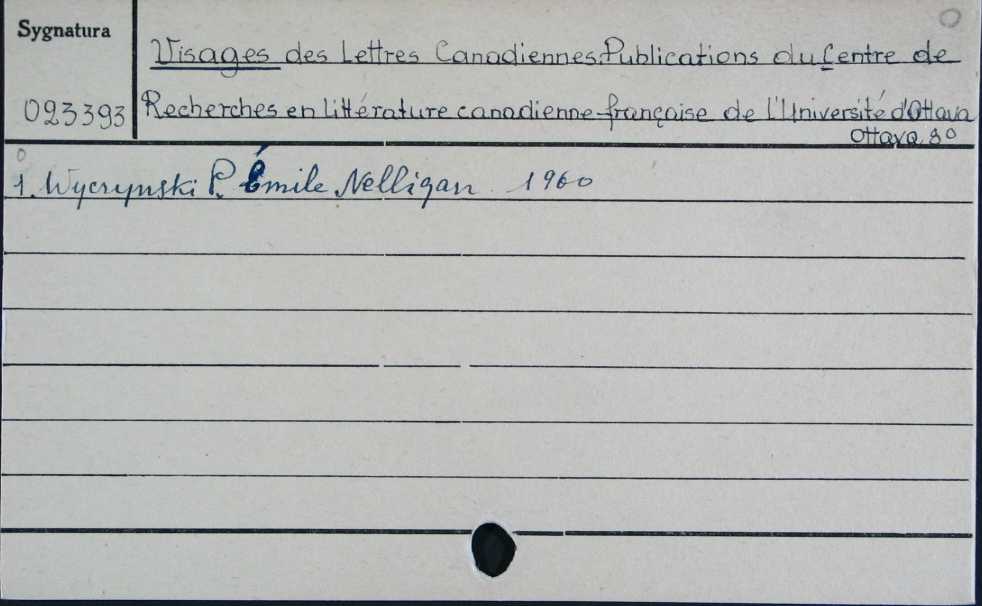 Sygnatura
Visages des Lettres Canadiennes. Publications du Centre de
023393 Recherches en littérature canadienne-française de l'Université d'Ottava
Ottava 8°
1. Wyczynski P. Émile Nelligan. 1960